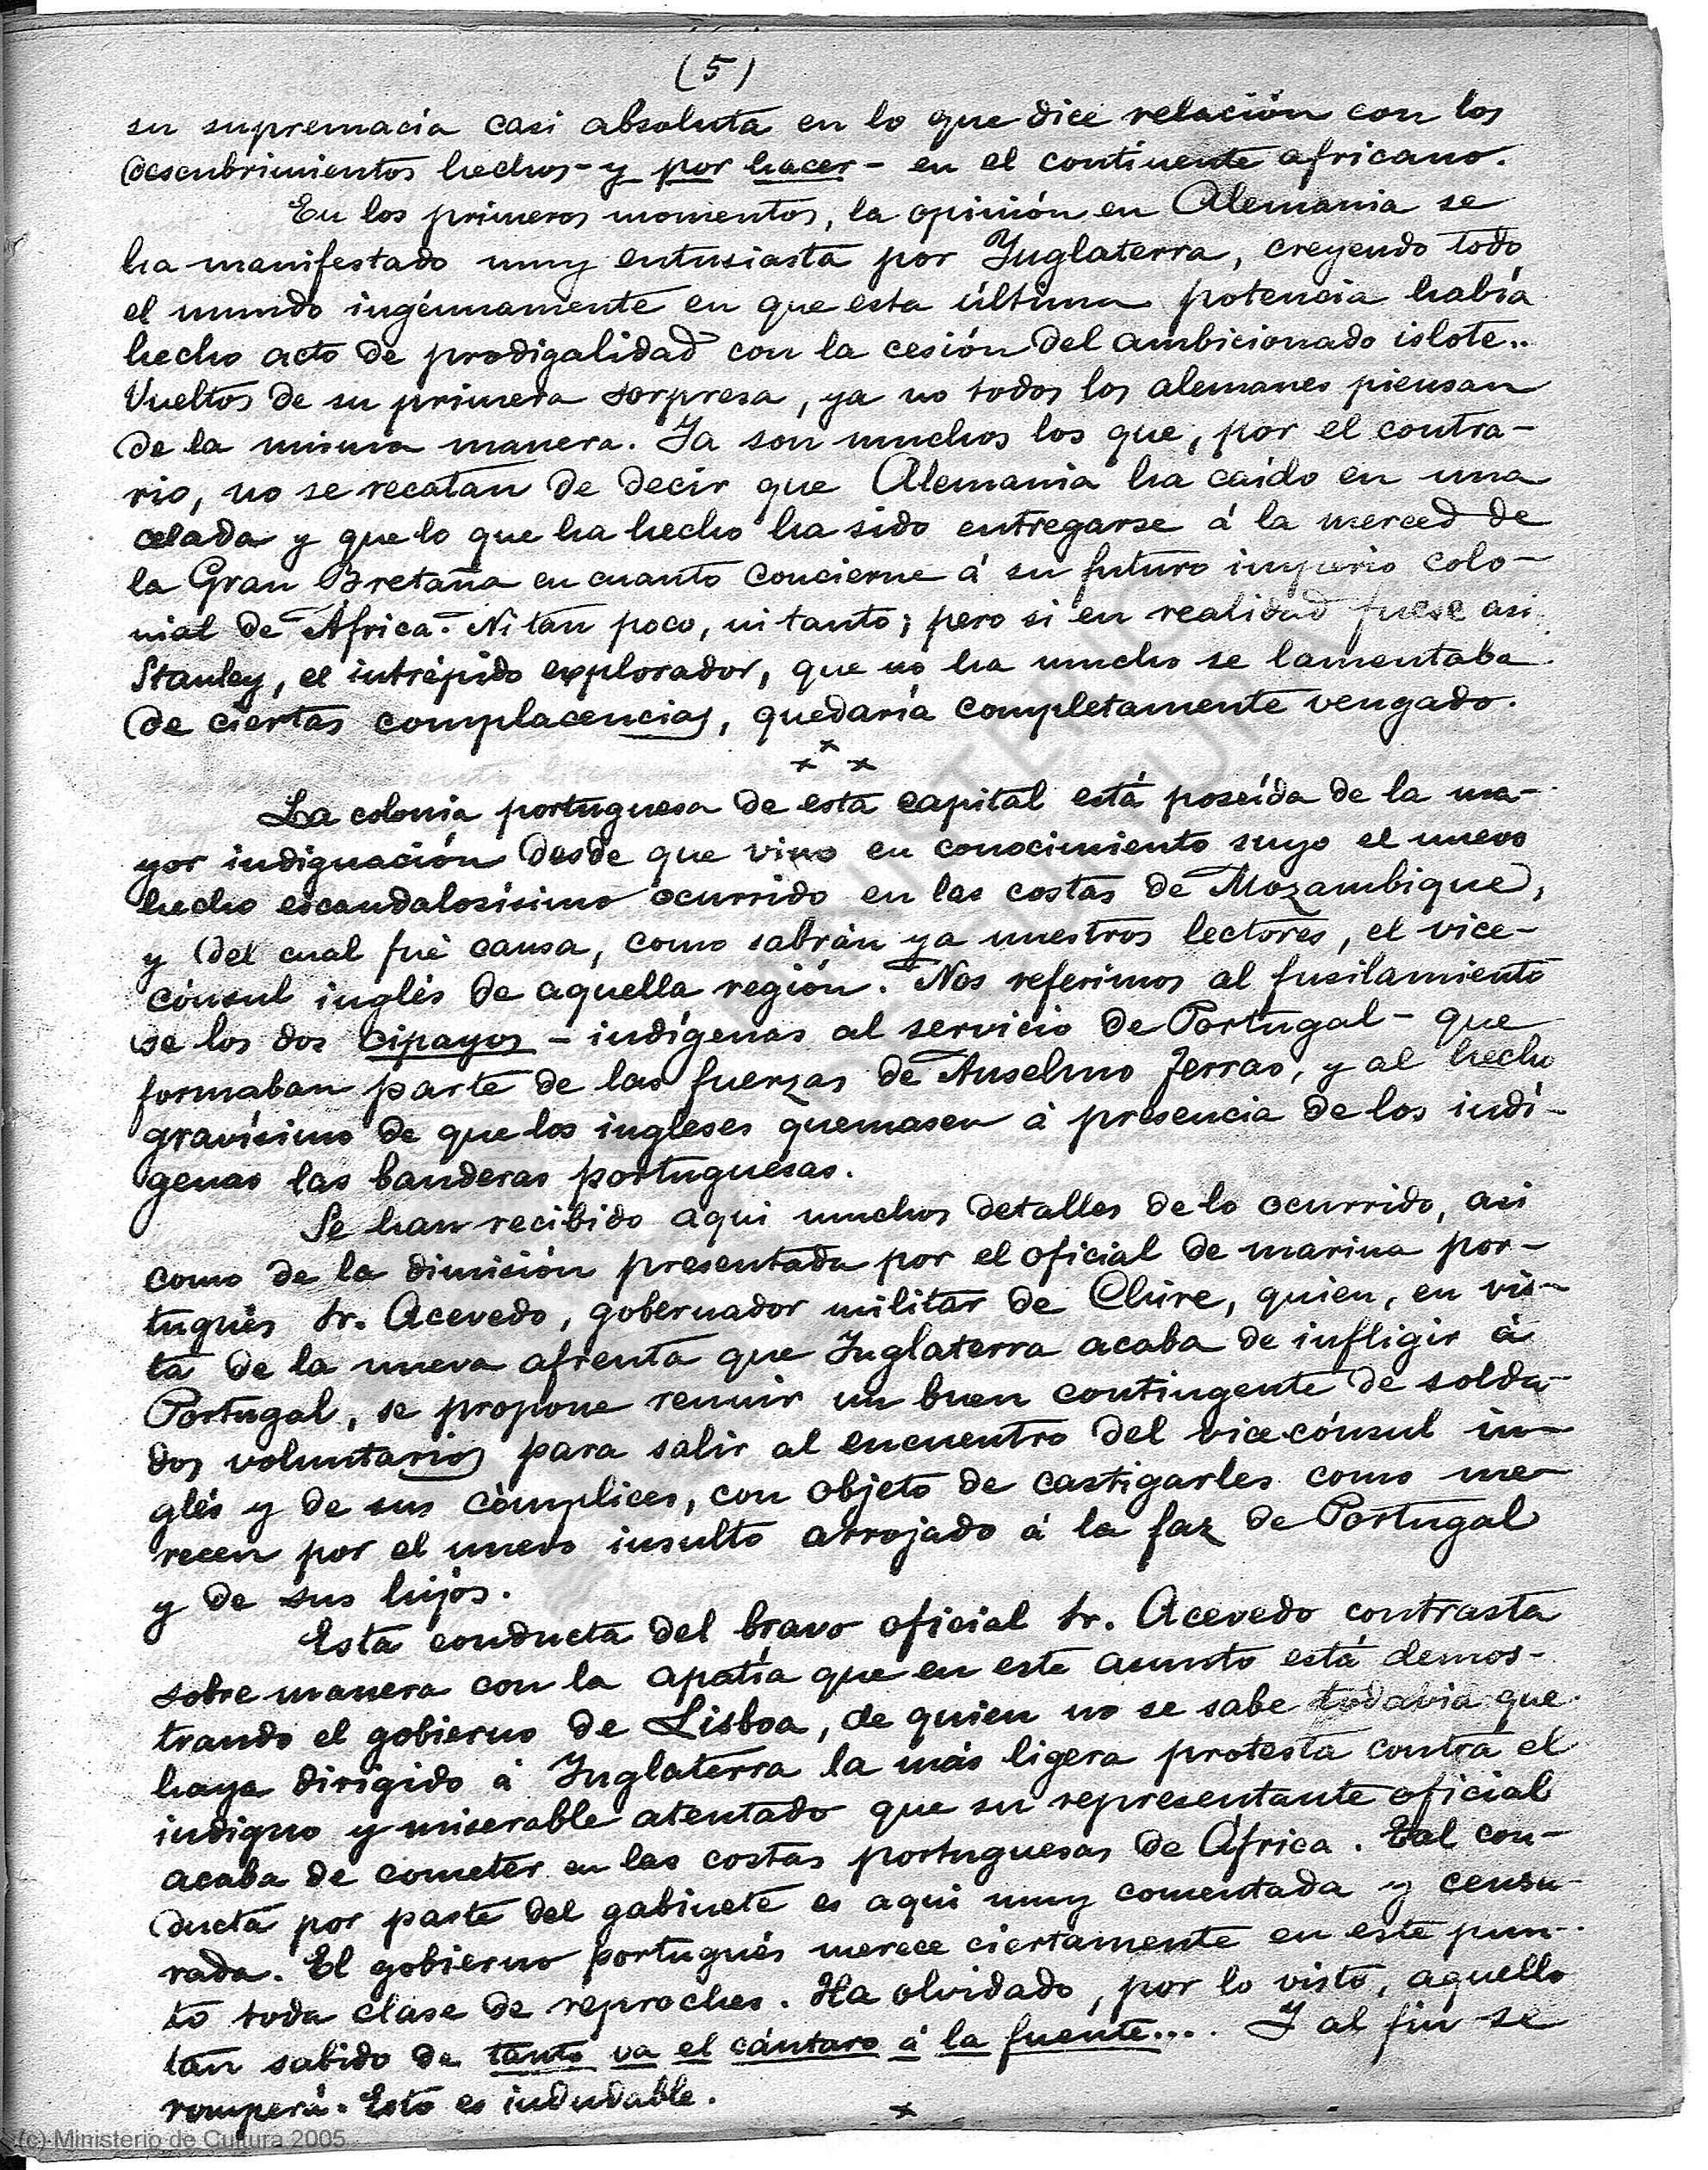 (5)
su supremacía casi absoluta en lo que dice relación con los
descubrimientos hechos - y por hacer - en el continente africano.
En los primeros momentos, la opinión en Alemania se
ha manifestado muy entusiasta por Inglaterra, creyendo todo
el mundo ingénuamente en que esta última potencia había
hecho acto de prodigalidad con la cesión del ambicionado islote..
Vueltos de su primera sorpresa, ya no todos los alemanes piensan
de la misma manera. Ya son muchos los que, por el contra-
rio, no se recatan de decir que Alemania ha caído en una
celada y que lo que ha hecho ha sido entregarse á la merced de
la Gran Bretaña en cuanto concierne á su futuro imperio colo-
nial de África. Ni tan poco, ni tanto; pero si en realidad fuese asi
Stanley, el intrépido explorador, que no ha mucho se lamentaba
de ciertas complacencias, quedaría completamente vengado.
x x x
La colonia portuguesa de esta capital está poseída de la ma-
yor indignación desde que vino en conocimiento suyo el nuevo
hecho escandalosísimo ocurrido en las costas de Mozambique,
y del cual fué causa, como sabrán ya nuestros lectores, el vice-
cónsul inglés de aquella región. Nos referimos al fusilamiento
de los dos cipayos - indígenas al servicio de Portugal - que
formaban parte de las fuerzas de Anselmo Ferrao, y al hecho
gravísimo de que los ingleses quemasen á presencia de los indí-
genas las banderas portuguesas.
Se han recibido aqui muchos detalles de lo ocurrido, asi
como de la dimisión presentada por el oficial de marina por-
tugués Sr. Acevedo, gobernador militar de Chire, quien, en vis-
ta de la nueva afrenta que Inglaterra acaba de infligir á
Portugal, se propone reunir un buen contingente de solda-
dos voluntarios para salir al encuentro del vicecónsul in-
glés y de sus cómplices, con objeto de castigarles como me-
recen por el nuevo insulto arrojado á la faz de Portugal
y de sus hijos.
Esta conducta del bravo oficial Sr. Acevedo contrasta
sobre manera con la apatía que en este asunto está demos-
trando el gobierno de Lisboa, de quien no se sabe todabia que
haya dirigido á Inglaterra la más ligera protesta contra el
indigno y miserable atentado que su representante oficial
acaba de cometer en las costas portuguesas de África. Tal con-
ducta por parte del gabinete es aqui muy comentada y censu-
rada. El gobierno portugués merece ciertamente en este pun-
to toda clase de reproches. Ha olvidado, por lo visto, aquello
tan sabido de tanto va el cántaro á la fuente.... Y al fin se
romperá. Esto es indudable.
x
(c) Ministerio de Cultura 2005